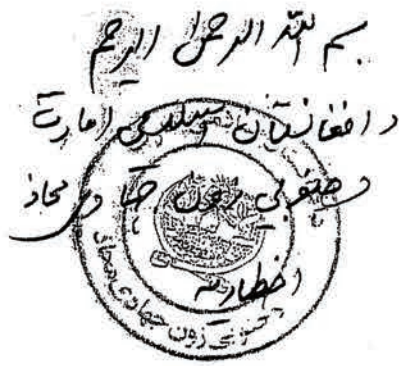 بسم الله الرحمن الرحیم
د افغانستان اسلامی امارت
د جنوبي زون جهادي محاذ
اخطاریه
جنوبي زون جهادي محاذ